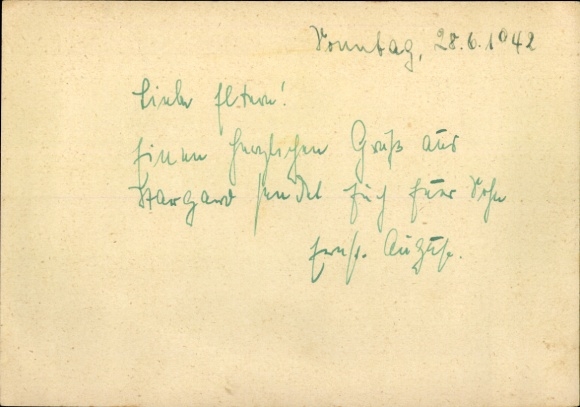 Sonntag, 28.6.1942
Liebe Eltern!
Einen herzlichen Gruß aus
Stargard sendet Euch Euer Sohn
Ernst-August.